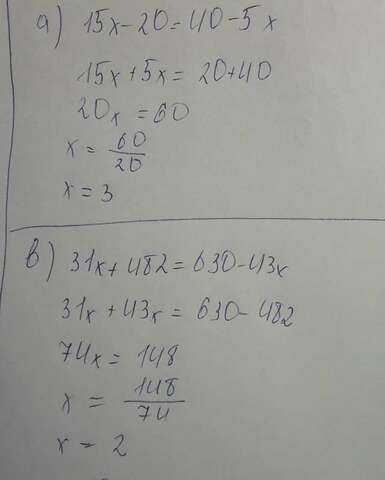 а) 15x-20=40-5x
15x+5x=20+40
20x=60
x=60/20
x=3
в) 31x+482=630-43x
31x+43x=630-482
74x=148
x=148/74
x=2